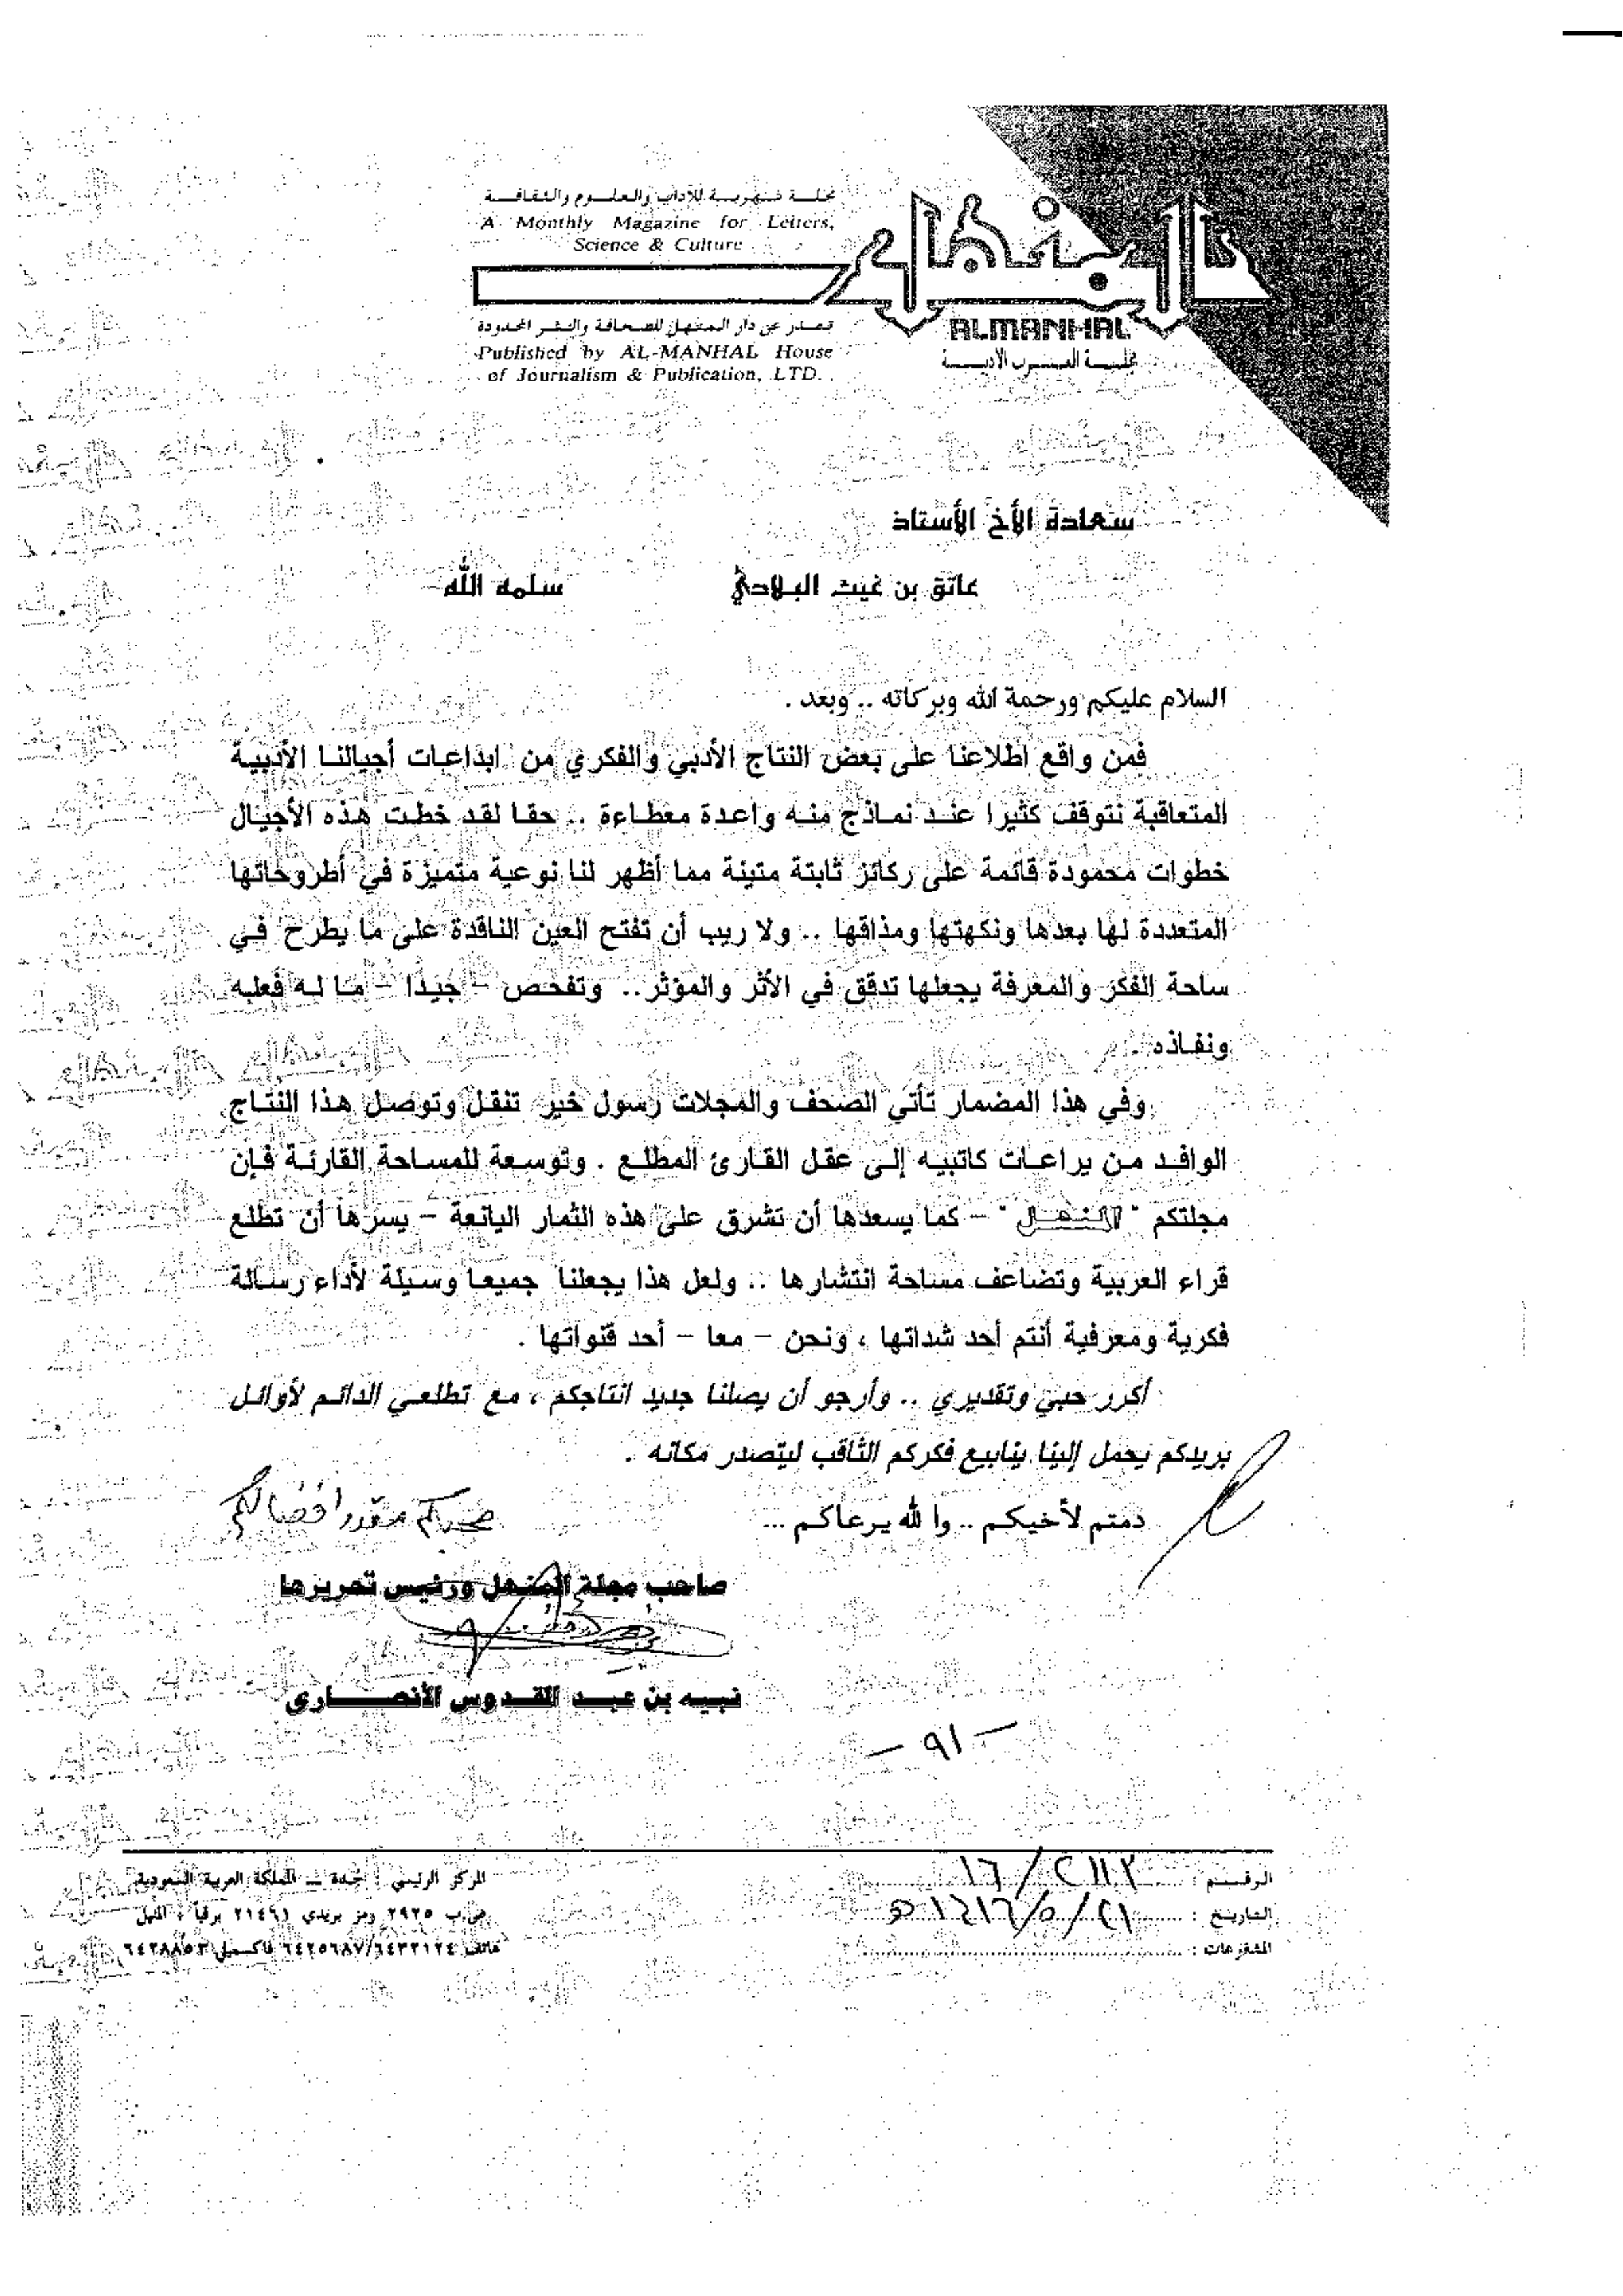 مجلة شهرية للآداب والعلوم والثقافة
A Monthly Magazine for Letters,
Science & Culture
المنهل
ALMANHAL
تصدر عن دار المنهل للصحافة والنشر المحدودة
Published by AL-MANHAL House
of Journalism & Publication, LTD.
مجلة العرب الأدبية
سعادة الأخ الأستاذ
عاتق بن غيث البلادي سلمه الله
السلام عليكم ورحمة الله وبركاته .. وبعد .
فمن واقع اطلاعنا على بعض النتاج الأدبي والفكري من ابداعات أجيالنا الأدبية
المتعاقبة نتوقف كثيرا عند نماذج منه واعدة معطاءة .. حقا لقد خطت هذه الأجيال
خطوات محمودة قائمة على ركائز ثابتة متينة مما أظهر لنا نوعية متميزة في أطروحاتها
المتعددة لها بعدها ونكهتها ومذاقها .. ولا ريب أن تفتح العين الناقدة على ما يطرح في
ساحة الفكر والمعرفة يجعلها تدقق في الأثر والمؤثر .. وتفحص - جيدا - ما له فعله
ونفاذه .
وفي هذا المضمار تأتي الصحف والمجلات رسول خير تنقل وتوصل هذا النتاج
الوافد من يراعات كاتبيه إلى عقل القارئ المطلع . وتوسعة للمساحة القارئة فإن
مجلتكم " المنهل " - كما يسعدها أن تشرق على هذه الثمار اليانعة - يسرها أن تطلع
قراء العربية وتضاعف مساحة انتشارها .. ولعل هذا يجعلنا جميعا وسيلة لأداء رسالة
فكرية ومعرفية أنتم أحد شداتها ، ونحن - معا - أحد قنواتها .
أكرر حبي وتقديري .. وأرجو أن يصلنا جديد انتاجكم ، مع تطلعي الدائم لأوائل
بريدكم يحمل إلينا ينابيع فكركم الثاقب ليتصدر مكانه .
دمتم لأخيكم .. والله يرعاكم ...
محبكم مقدر أفضالكم
صاحب مجلة المنهل ورئيس تحريرها
نبيه بن عبد القدوس الأنصاري
- ٩١ -
الرقم : ١٦/٢١١٢
التاريخ : ٢١/٥/١٤١٦ هـ
المشفوعات :
المركز الرئيسي : جدة - المملكة العربية السعودية
ص.ب ٢٩٢٥ رمز بريدي ٢١٤٦١ برقياً : المنهل
هاتف ٦٤٢٥٦٨٧/٦٤٣٢١٢٤ فاكسميل ٦٤٢٨٨٥٣